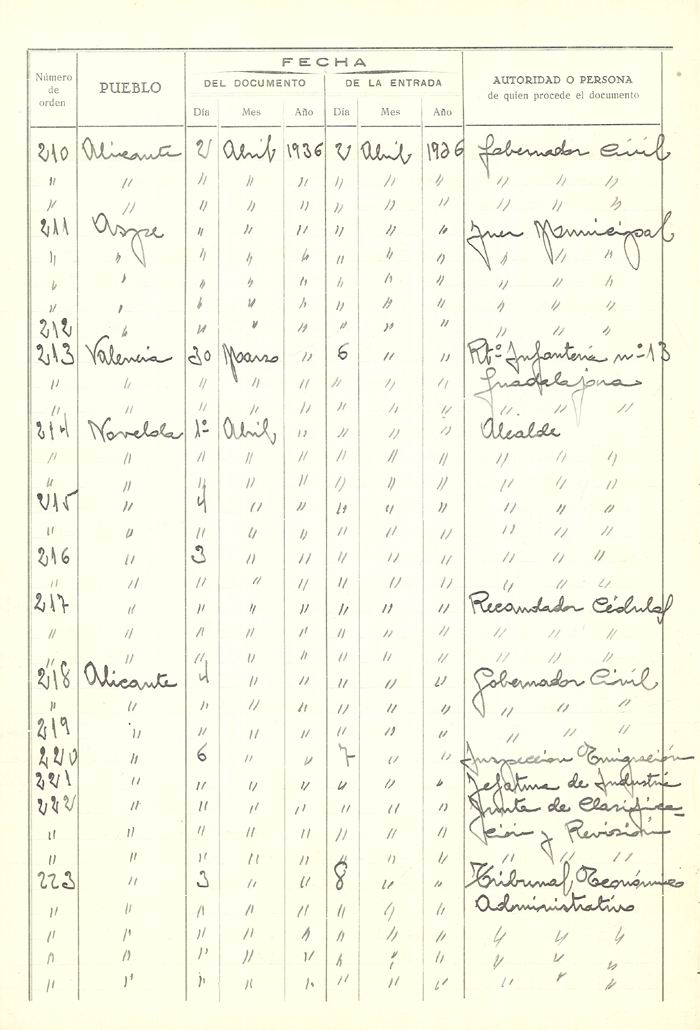 FECHA
Número de orden PUEBLO DEL DOCUMENTO DE LA ENTRADA AUTORIDAD O PERSONA de quien procede el documento
Día Mes Año Día Mes Año
210 Alicante 2 Abril 1936 2 Abril 1936 Gobernador Civil
" " " " " " " " " " "
" " " " " " " " " " "
211 Aspe " " " " " " Juez Municipal
" " " " " " " " " " "
" " " " " " " " " " "
" " " " " " " " " " "
212 " " " " " " " " " "
213 Valencia 30 Marzo " 6 " " Rtº Infanteria nº 13
" " " " " " " " Guadalajara
" " " " " " " " " " "
214 Novelda 1º Abril " " " " Alcalde
" " " " " " " " " " "
" " " " " " " " " " "
215 " 4 " " " " " " " "
" " " " " " " " " " "
216 " 3 " " " " " " " "
" " " " " " " " " " "
217 " " " " " " " Recaudador Cédulas
" " " " " " " " " " "
" " " " " " " " " " "
218 Alicante 4 " " " " " Gobernador Civil
" " " " " " " " " "
219 " " " " " " " " "
220 " 6 " " 7 " " Inspección Emigración
221 " " " " " " " Jefatura de Industria
222 " " " " " " " Junta de Clasifica-
" " " " " " " " ción y Revisión
" " " " " " " " " " "
223 " 3 " " 8 " " Tribunal Económico
" " " " " " " " Administrativo
" " " " " " " " " " "
" " " " " " " " " " "
" " " " " " " " " " "